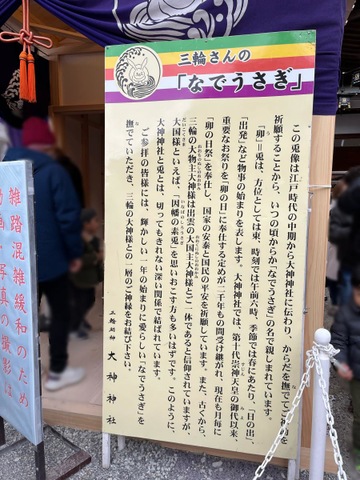 三輪さんの
「なでうさぎ」
この兎像は江戸時代の中期から大神神社に伝わり、からだを撫でてご神助を
祈願することから、いつの頃からか「なでうさぎ」の名で親しまれています。
「卯」＝兎は、方位としては東、時刻では午前六時、季節では春にあたり、「日の出」
「出発」など物事の始まりを表します。大神神社では、第十代崇神天皇の御代以来、
重要なお祭りを「卯の日」に奉仕する定めが二千年もの間受け継がれ、現在も月毎に
「卯の日祭」を奉仕し、国家の安泰と国民の平安を祈願しています。また、古くから、
三輪の大物主大神様は出雲の大国主大神様とご一体であると信仰されていますが、
大国様といえば、「因幡の素兎」を思いおこす方も多いはずです。このように、
大神神社と兎とは、切ってもきれない深い関係で結ばれています。
ご参拝の皆様には、輝かしい一年の始まりに愛らしい「なでうさぎ」を
撫でていただき、三輪の大神様との一層のご神縁をお結び下さい。
三輪明神
大神神社
雑踏混雑緩和のため
動画・写真の撮影は